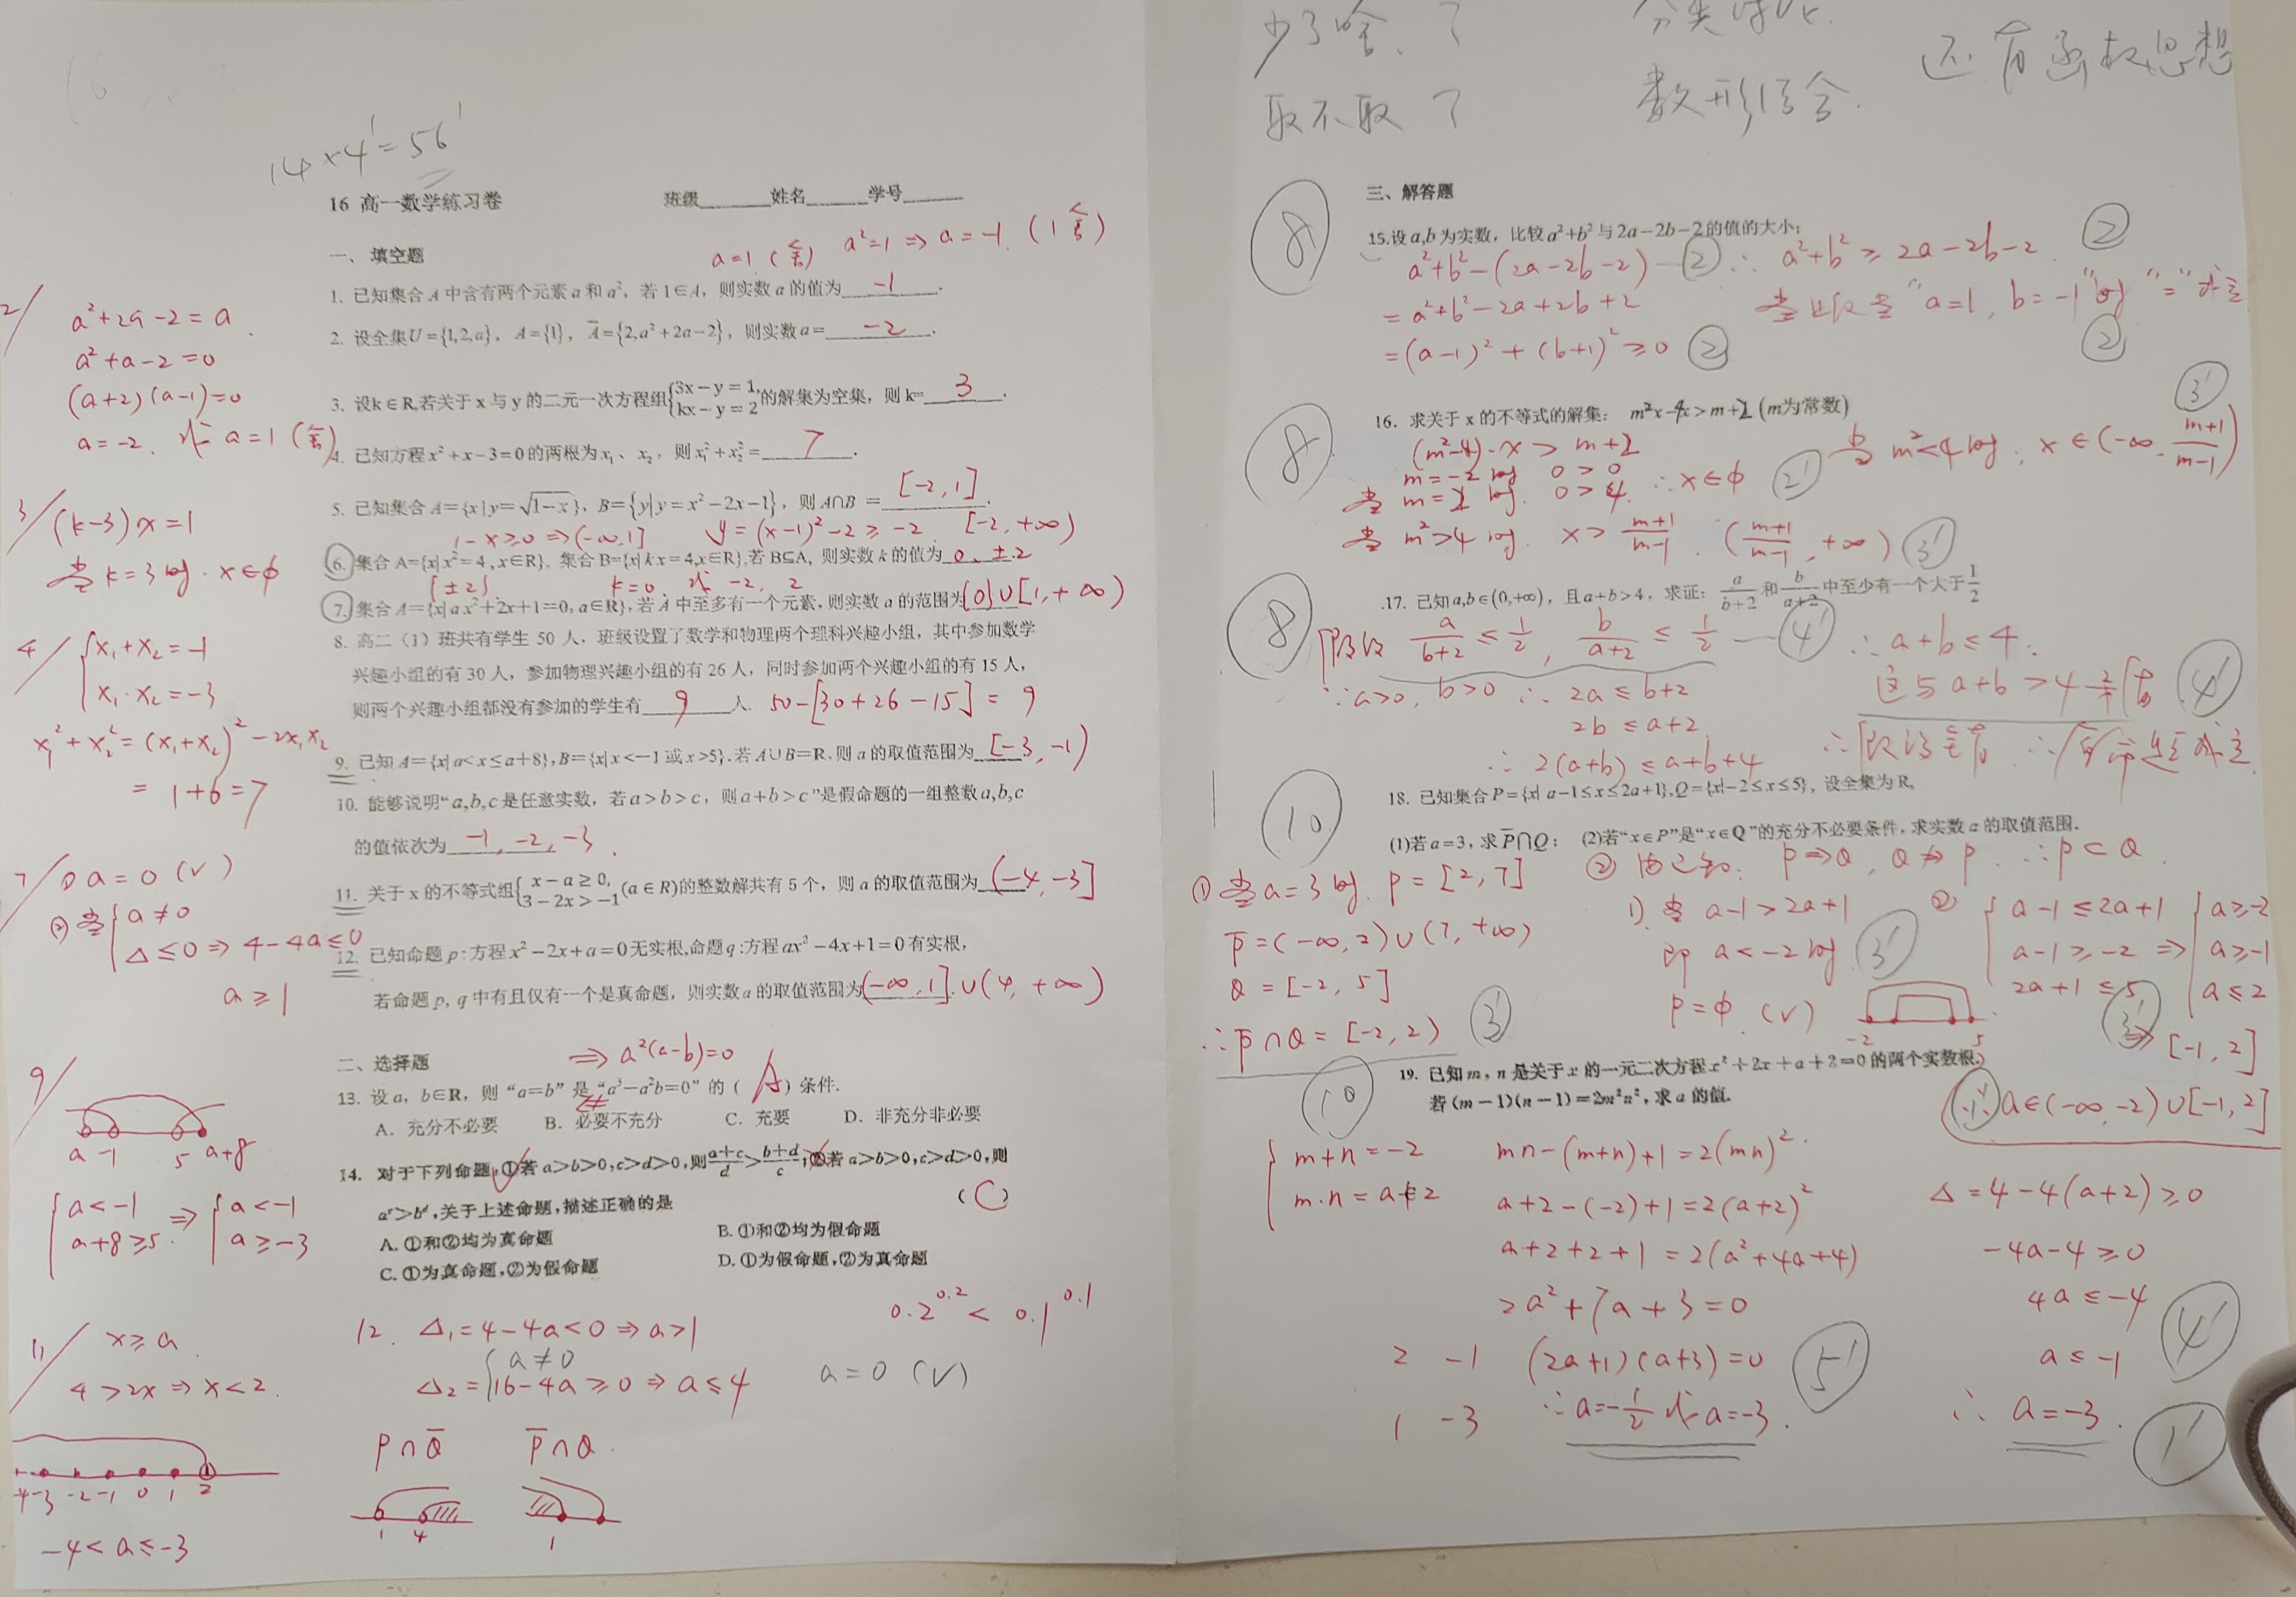 14×4'=56'
16 高一数学练习卷 班级______姓名______学号______
一、填空题
a=1 (舍) a²=1 ⇒ a=-1. (1舍)
1. 已知集合 A 中含有两个元素 a 和 a²，若 1∈A，则实数 a 的值为 -1 .
2. 设全集U={1,2,a}，A={1}，A̅={2,a²+2a−2}，则实数a= -2 .
3. 设k∈R,若关于 x 与 y 的二元一次方程组{3x−y=1, kx−y=2 的解集为空集，则 k= 3 .
4. 已知方程x²+x−3=0的两根为x₁、x₂，则x₁²+x₂²= 7 .
5. 已知集合 A={x|y=√(1−x)}，B={y|y=x²−2x−1}，则 A∩B = [-2,1] .
1-x≥0 ⇒(-∞,1] y=(x-1)²-2≥-2 [-2,+∞)
6. 集合 A={x|x²=4,x∈R}，集合 B={x|kx=4,x∈R},若 B⊆A，则实数 k 的值为 0,±2
{±2} k=0, 或 -2, 2
7. 集合 A={x|ax²+2x+1=0,a∈R},若 A 中至多有一个元素,则实数 a 的范围为 {0}∪[1,+∞)
8. 高二（1）班共有学生 50 人，班级设置了数学和物理两个理科兴趣小组，其中参加数学
兴趣小组的有 30 人，参加物理兴趣小组的有 26 人，同时参加两个兴趣小组的有 15 人，
则两个兴趣小组都没有参加的学生有 9 人. 50-[30+26-15]=9
9. 已知 A={x|a<x≤a+8},B={x|x<−1 或 x>5}.若 A∪B=R,则 a 的取值范围为 [-3,-1)
10. 能够说明“a,b,c是任意实数，若a>b>c，则a+b>c”是假命题的一组整数a,b,c
的值依次为 -1,-2,-3 .
11. 关于 x 的不等式组{x−a≥0, 3−2x>−1 (a∈R)的整数解共有 5 个，则 a 的取值范围为 (-4,-3]
12. 已知命题 p:方程x²−2x+a=0无实根,命题q:方程ax²−4x+1=0有实根,
若命题 p, q 中有且仅有一个是真命题，则实数a的取值范围为 (-∞,1]∪(4,+∞)
二、选择题
⇒a²(a-b)=0
13. 设 a，b∈R，则“a=b”是“a³−a²b=0”的 ( A ) 条件.
A. 充分不必要 B. 必要不充分 C. 充要 D. 非充分非必要
14. 对于下列命题,①若 a>b>0,c>d>0,则(a+c)/d>(b+d)/c;②若 a>b>0,c>d>0,则
aᶜ>bᵈ,关于上述命题,描述正确的是 ( C )
A. ①和②均为真命题 B. ①和②均为假命题
C. ①为真命题,②为假命题 D. ①为假命题,②为真命题
2/ a²+2a-2=a
a²+a-2=0
(a+2)(a-1)=0
a=-2. 或a=1(舍)
3/ (k-3)x=1
当k=3时. x∈φ
4/ {x₁+x₂=-1
x₁·x₂=-3
x₁²+x₂²=(x₁+x₂)²-2x₁x₂
=1+6=7
7/ ① a=0 (√)
② 当{a≠0
Δ≤0 ⇒4-4a≤0
a≥1
9/
a -1 5 a+8
{a<-1 ⇒ {a<-1
a+8≥5. a≥-3
11/ x≥a.
4>2x⇒x<2.
-4 -3 -2 -1 0 1 2
-4<a≤-3
12. Δ₁=4-4a<0⇒a>1 0.2^0.2 < 0.1^0.1
a≠0
Δ₂={16-4a≥0⇒a≤4 a=0 (√)
P∩Q̅ P̅∩Q.
1 4 1
少了啥、了 分类讨论. 还有函数思想
取不取 了 数形结合.
三、解答题
⑧ 15.设a,b为实数，比较a²+b²与2a−2b−2的值的大小;
a²+b²-(2a-2b-2) —② ∴ a²+b²≥2a-2b-2 ②
=a²+b²-2a+2b+2 当且仅当“a=1, b=-1”时“=”成立
=(a-1)²+(b+1)²≥0 ② ②
⑧ 16. 求关于 x 的不等式的解集： m²x-4x>m+2 (m为常数)
(m²-4)·x>m+2 当m²<4时, x∈(-∞, (m+1)/(m-1)) 3'
m=-2时 0>0
当 m=2时. 0>4. ∴x∈φ 2'
当 m²>4时. x>(m+1)/(m-1). ((m+1)/(m-1), +∞) 3'
⑧ 17. 已知a,b∈(0,+∞)，且a+b>4，求证：a/(b+2)和b/(a+2)中至少有一个大于1/2
假设 a/(b+2)≤1/2, b/(a+2)≤1/2 — 4' ∴a+b≤4.
∵a>0, b>0 ∴ 2a≤b+2 这与a+b>4矛盾 4'
2b≤a+2
∴2(a+b)≤a+b+4 ∴假设错误 ∴原命题成立.
⑩ 18. 已知集合P={x|a−1≤x≤2a+1},Q={x|−2≤x≤5}，设全集为 R,
(1)若a=3，求P̅∩Q； (2)若“x∈P”是“x∈Q”的充分不必要条件，求实数 a 的取值范围.
① 当a=3时. P=[2,7]
P̅=(-∞,2)∪(7,+∞)
Q=[-2,5]
∴P̅∩Q=[-2,2) 3'
② 由已知: P⇒Q, Q⇏P. ∴P⊂Q.
1). 当 a-1>2a+1
即 a<-2时 3'
P=φ. (√)
② {a-1≤2a+1 {a≥-2
a-1≥-2 ⇒ a≥-1
2a+1≤5 a≤2
-2 5 3' ⇒[-1,2]
1' ∴a∈(-∞,-2)∪[-1,2]
⑩ 19. 已知 m，n 是关于 x 的一元二次方程 x²+2x+a+2=0 的两个实数根,
若 (m−1)(n−1)=2m²n²，求 a 的值.
{m+n=-2 mn-(m+n)+1=2(mn)².
m·n=a+2 a+2-(-2)+1=2(a+2)² Δ=4-4(a+2)≥0
a+2+2+1=2(a²+4a+4) -4a-4≥0
2a²+7a+3=0 4a≤-4 4'
2 -1 (2a+1)(a+3)=0 5' a≤-1
1 -3 ∴a=-1/2或a=-3. ∴ a=-3. 1'